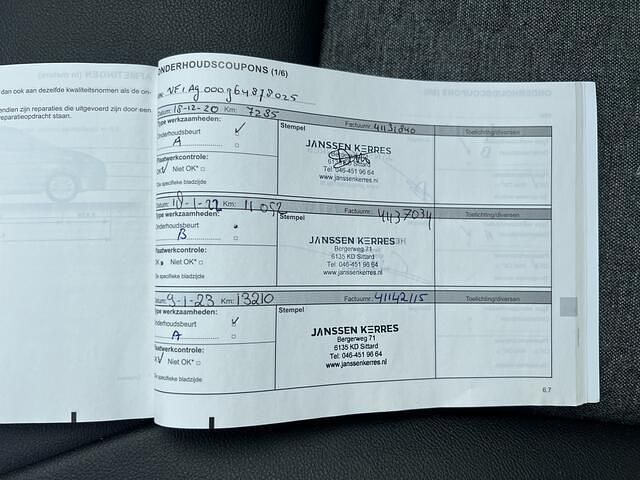 dan ook aan dezelfde kwaliteitsnormen als de on-
endien zijn reparaties die uitgevoerd zijn door een
reparatieopdracht staan.
ONDERHOUDSCOUPONS (1/6)
Datum: 18-12-20 Km: 7285 Factuurnr.: Toelichting/diversen
Type werkzaamheden: Stempel
Onderhoudsbeurt ✓
A
Plaatwerkcontrole:
OK ✓ Niet OK* □
Zie specifieke bladzijde
JANSSEN KERRES
Tel: 046-451 96 64
www.janssenkerres.nl
Datum: 18-1-22 Km: 11 052 Factuurnr.: 41137034 Toelichting/diversen
Type werkzaamheden: Stempel
Onderhoudsbeurt
B □
Plaatwerkcontrole:
OK Niet OK* □
Zie specifieke bladzijde
JANSSEN KERRES
Bergerweg 71
6135 KD Sittard
Tel: 046-451 96 64
www.janssenkerres.nl
Datum: 9-1-23 Km: 13210 Factuurnr.: 41142115 Toelichting/diversen
Type werkzaamheden: Stempel
Onderhoudsbeurt ✓
A □
Plaatwerkcontrole:
OK ✓ Niet OK* □
Zie specifieke bladzijde
JANSSEN KERRES
Bergerweg 71
6135 KD Sittard
Tel: 046-451 96 64
www.janssenkerres.nl
6.7